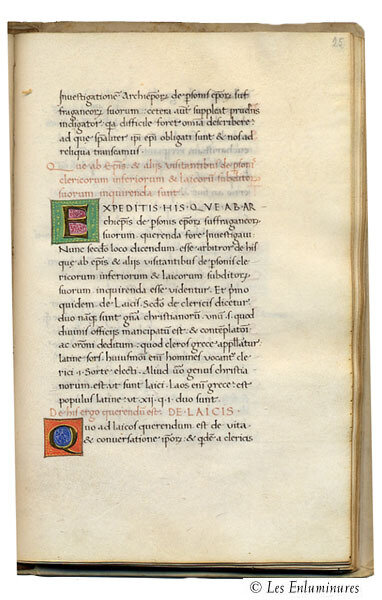 25
Inuestigationẽ Archiep̃orȝ de p̃sonis ep̃orȝ suf
fraganeorȝ suorum: cetera aut suppleat prudẽs
indigator qa difficile foret omĩa describere:
ad que sp̃aliter ipi ep̃i obligati sunt & nos ad
reliqua transeamus
Que ab Ep̃is & alijs uisitantibus de p̃sonis
clericorum inferiorum & laicorȝ subditorȝ
suorum inquirenda sunt
EXPEDITIS HIS QVE AB AR
chiep̃is de p̃sonis ep̃orȝ suffraganeorȝ
suorum querenda fore Inuestigaui
Nunc sec̃do loco dicendum esse arbitror de his
que ab ep̃is & alijs uisitantibus de p̃sonis cleri
corum inferiorum & laicorum subditorȝ
suorum inquirenda esse uidentur. Et p̃mo
quidem de Laicis. Sec̃do de clericis dicetur
duo nãqȝ sunt gña christianorũ. unũ s quod
diuinis officijs mancipatũ est & contẽplatõi
ac orõni deditum: quod cleros grece appellãtur
latine sors. huiusmõi enĩ homines uocant̃ cle
rici .i. Sorte electi. Aliud uõ genus christia
norum est ut sunt laici. Laos enĩ grece: est
populus latine ut xij. q. i. duo sunt.
De his ergo querendũ est. DE LAICIS.
Quo ad laicos querendum est de uita
& conuersatione ip̃orȝ & qdẽ a clericis
© Les Enluminures